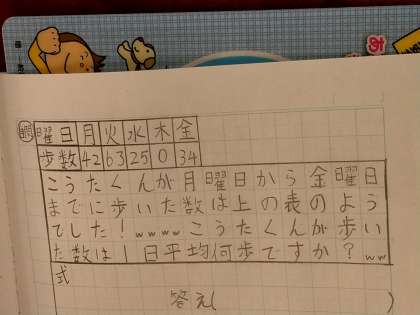 問 曜日月火水木金
歩数42 63 25 0 34
こうたくんが月曜日から金曜日
までに歩いた数は上の表のよう
でした！wwwwこうたくんが歩い
た数は1日平均何歩ですか？ww
式
答え( )